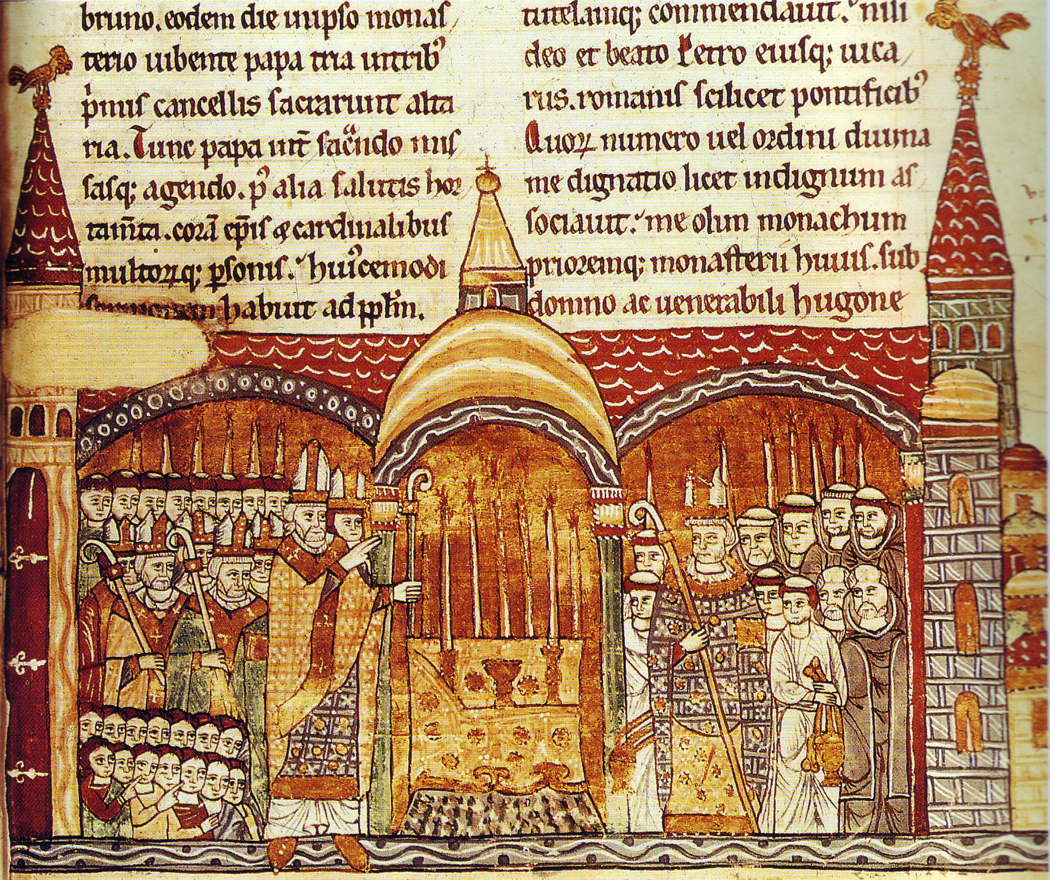 bruno. eodem die in ipso monas/
terio iubente papa tria in tribꝰ
pͥmis cancellis sacrarunt alta
ria. Tunc papa int̄ sac̄ndo mis/
sasq; agendo. pꝰ alia salutis hor
tam̄ta. corā ep̄is & cardinalibus
multorꝝq; ꝑsonis. huiꝰcemodi
habuit ad pp̄lm.
tutelamq; commendauit. nisi
deo et beato Petro eiusq; uica/
riis. romanis scilicet pontificibꝰ
Quoꝝ numero uel ordini diuina
me dignatio licet indignum as/
sociauit. me olim monachum
prioremq; monasterii huius. sub
domno ac uenerabili hugone